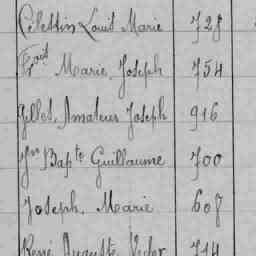 Célestin Louis Marie 728
Fçois Marie Joseph 754
Gillet, Amateur Joseph 916
Jn Bapte Guillaume 700
Joseph, Marie 608
René Auguste Victor 714